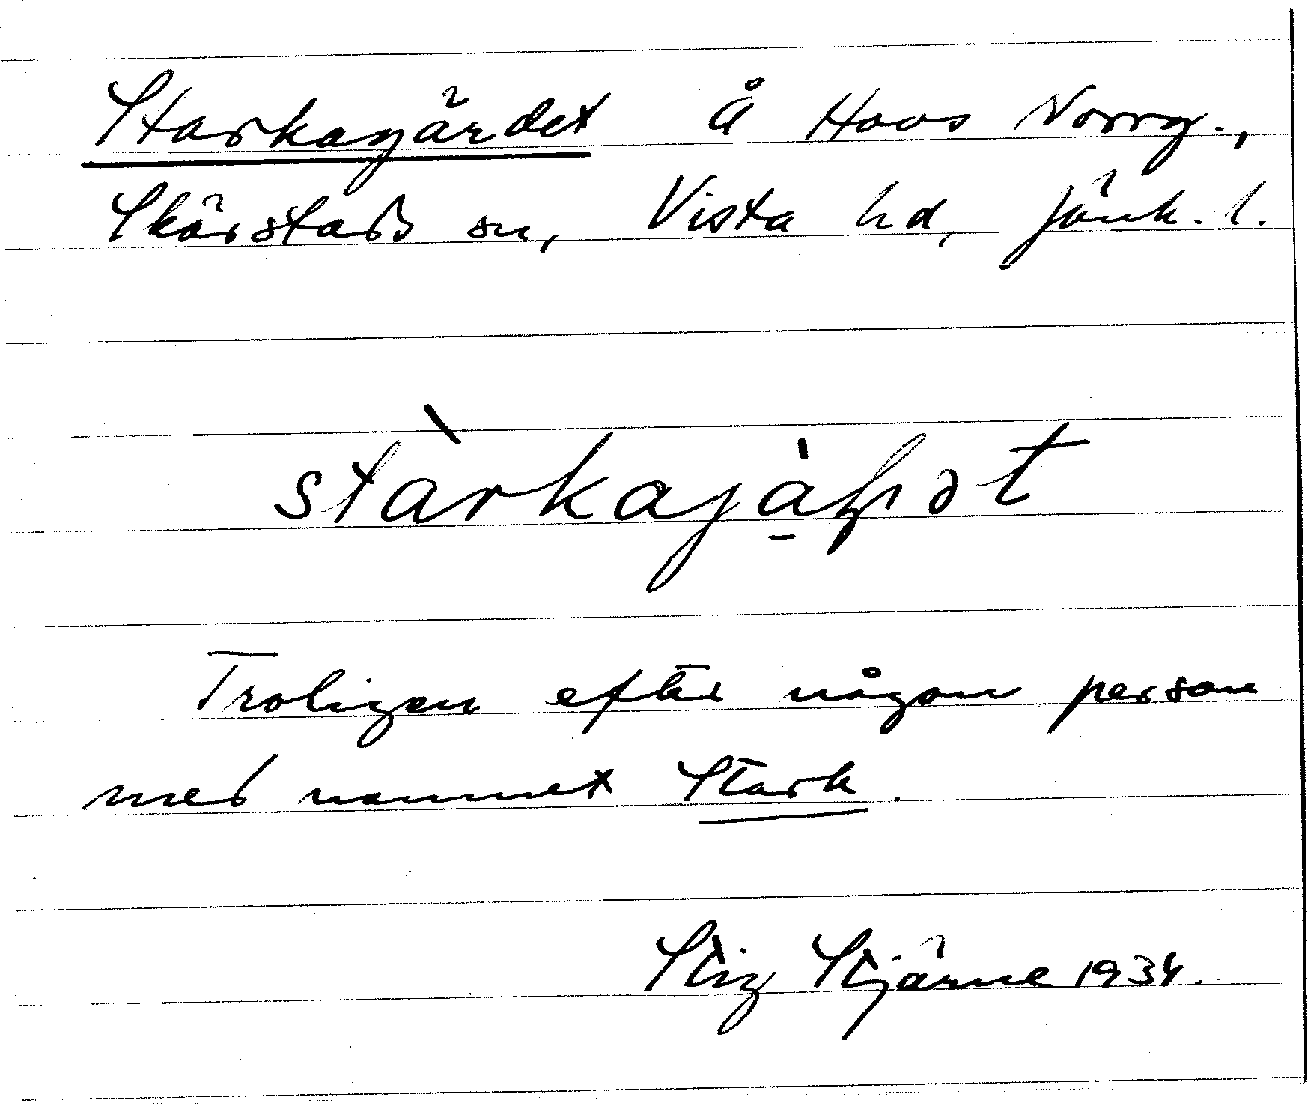 Starkagärdet å Hovs Norrg.,
Skärstads sn, Vista hd, Jönk. l.
Troligen efter någon person
med namnet Stark.
Stig Stjärne 1934.